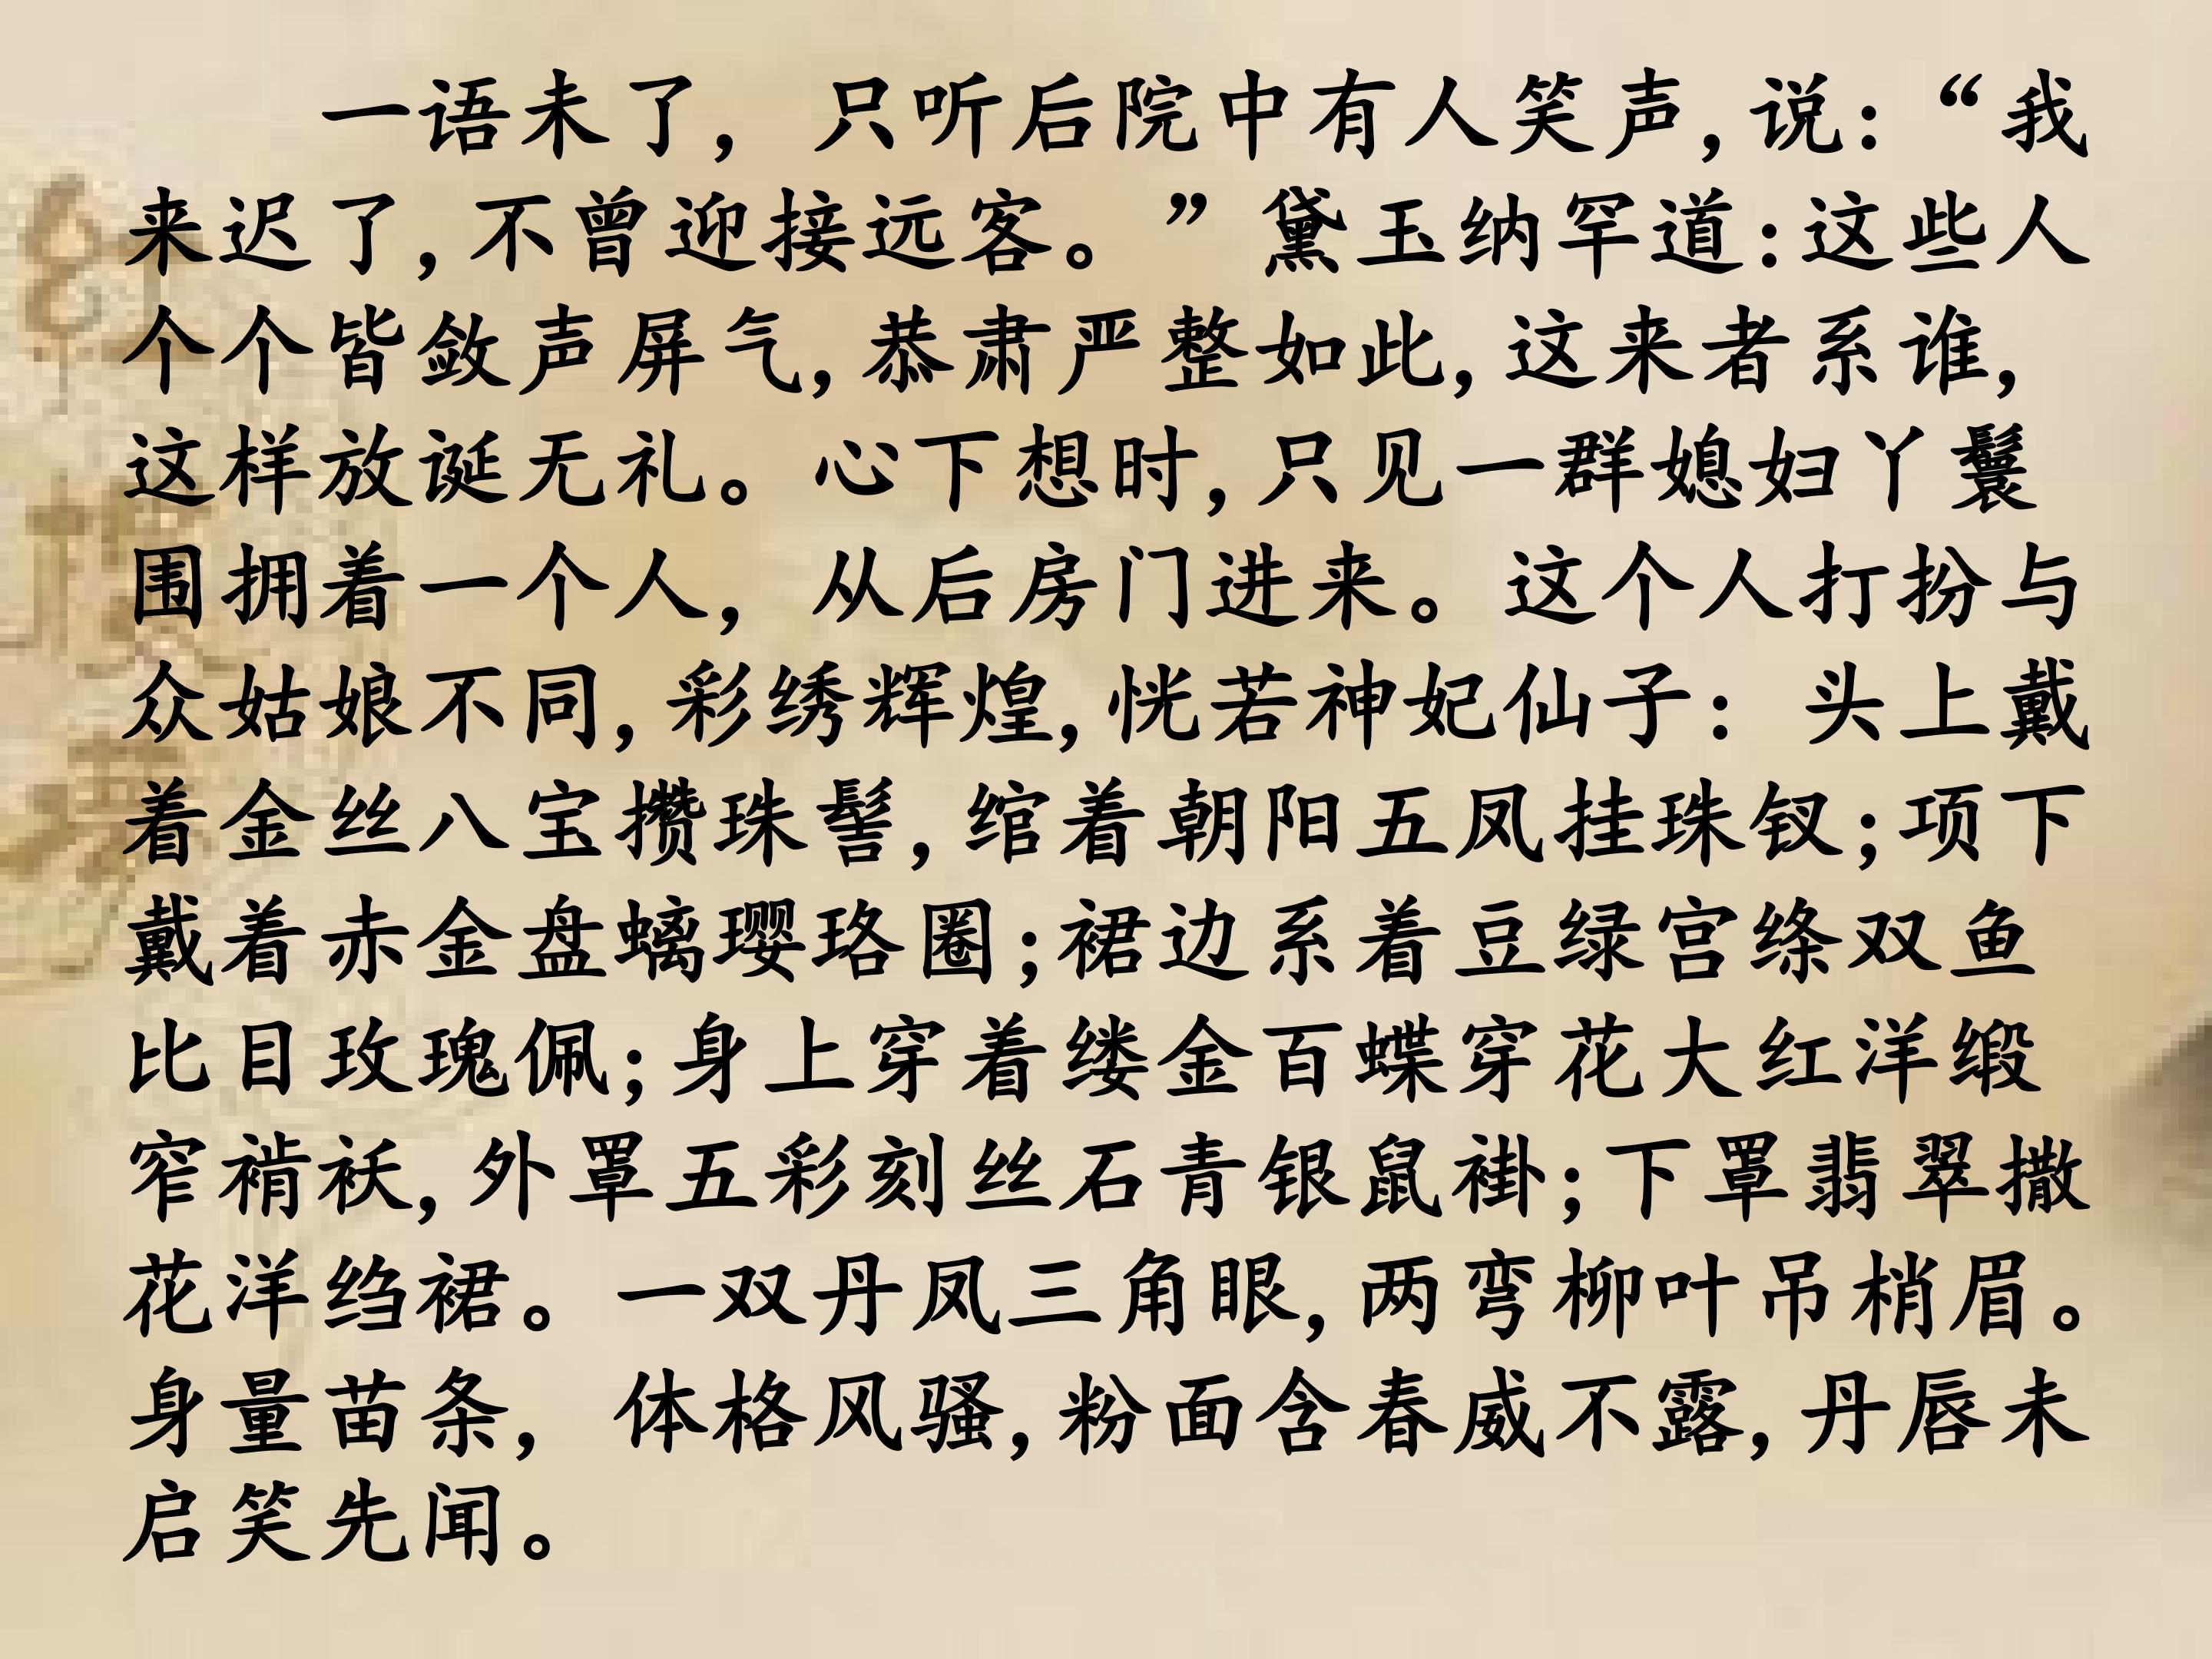 一语未了，只听后院中有人笑声,说:“我
来迟了,不曾迎接远客。”黛玉纳罕道:这些人
个个皆敛声屏气,恭肃严整如此,这来者系谁,
这样放诞无礼。心下想时,只见一群媳妇丫鬟
围拥着一个人，从后房门进来。这个人打扮与
众姑娘不同,彩绣辉煌,恍若神妃仙子：头上戴
着金丝八宝攒珠髻,绾着朝阳五凤挂珠钗;项下
戴着赤金盘螭璎珞圈;裙边系着豆绿宫绦双鱼
比目玫瑰佩;身上穿着缕金百蝶穿花大红洋缎
窄褃袄,外罩五彩刻丝石青银鼠褂;下罩翡翠撒
花洋绉裙。一双丹凤三角眼,两弯柳叶吊梢眉。
身量苗条，体格风骚,粉面含春威不露,丹唇未
启笑先闻。